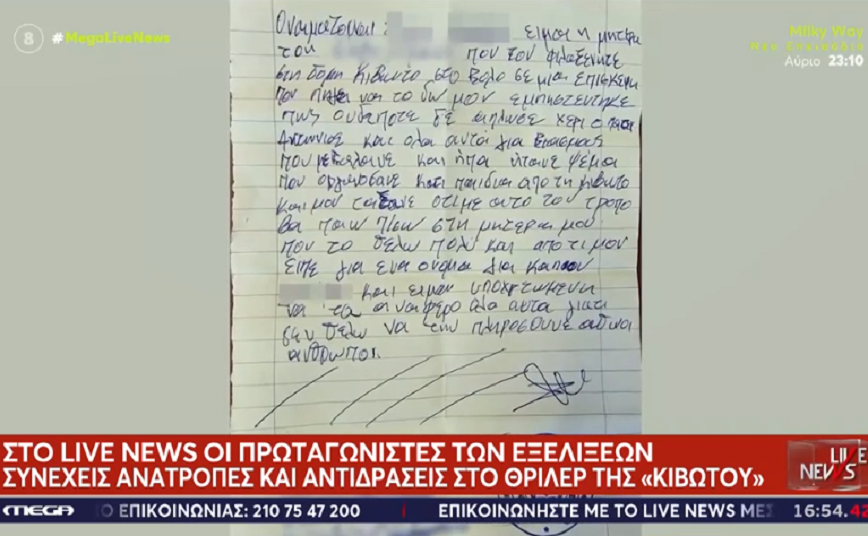 8 #MegaLiveNews
Milky Way
Νέα Επεισόδια
Αύριο 23:10
Ονοματσομαι : ειμαι η μητερα
του που τον φιλοξενητε
στη δομη κιβωτο στο βολο σε μια επισκεπη
που πηγα να το δω μου εμπηστευτηκε
πως ουδεποτε δε απλωσε χερι ο πατερ
Αντωνιος και ολα αυτα για βιασμους
και ητανε ψεμα
που οργανοσανε και παιδια απο τη κιβωτο
και μου οτι με αυτο τον τροπο
θα παω πισω στη μητερα μου
που το θελω πολυ και απο τι μου
ειπε για ενα ονομα για καποιον
και ειμαι υποχρεωμενη
να τα αναφερο ολα αυτα γιατι
δεν θελω να την πληροσουνε αθωοι
ανθρωποι.
ΣΤΟ LIVE NEWS ΟΙ ΠΡΩΤΑΓΩΝΙΣΤΕΣ ΤΩΝ ΕΞΕΛΙΞΕΩΝ
ΣΥΝΕΧΕΙΣ ΑΝΑΤΡΟΠΕΣ ΚΑΙ ΑΝΤΙΔΡΑΣΕΙΣ ΣΤΟ ΘΡΙΛΕΡ ΤΗΣ «ΚΙΒΩΤΟΥ»
LIVE
NEWS
MEGA Ο ΕΠΙΚΟΙΝΩΝΙΑΣ: 210 75 47 200 ΕΠΙΚΟΙΝΩΝΗΣΤΕ ΜΕ ΤΟ LIVE NEWS ΜΕΣ 16:54.42